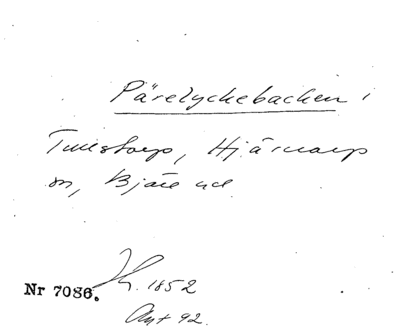 Pärelyckebacken i
Tunstorp, Hjärnarp
sn, Bjäre hd
Nr 7086. 1852
Ant 92.